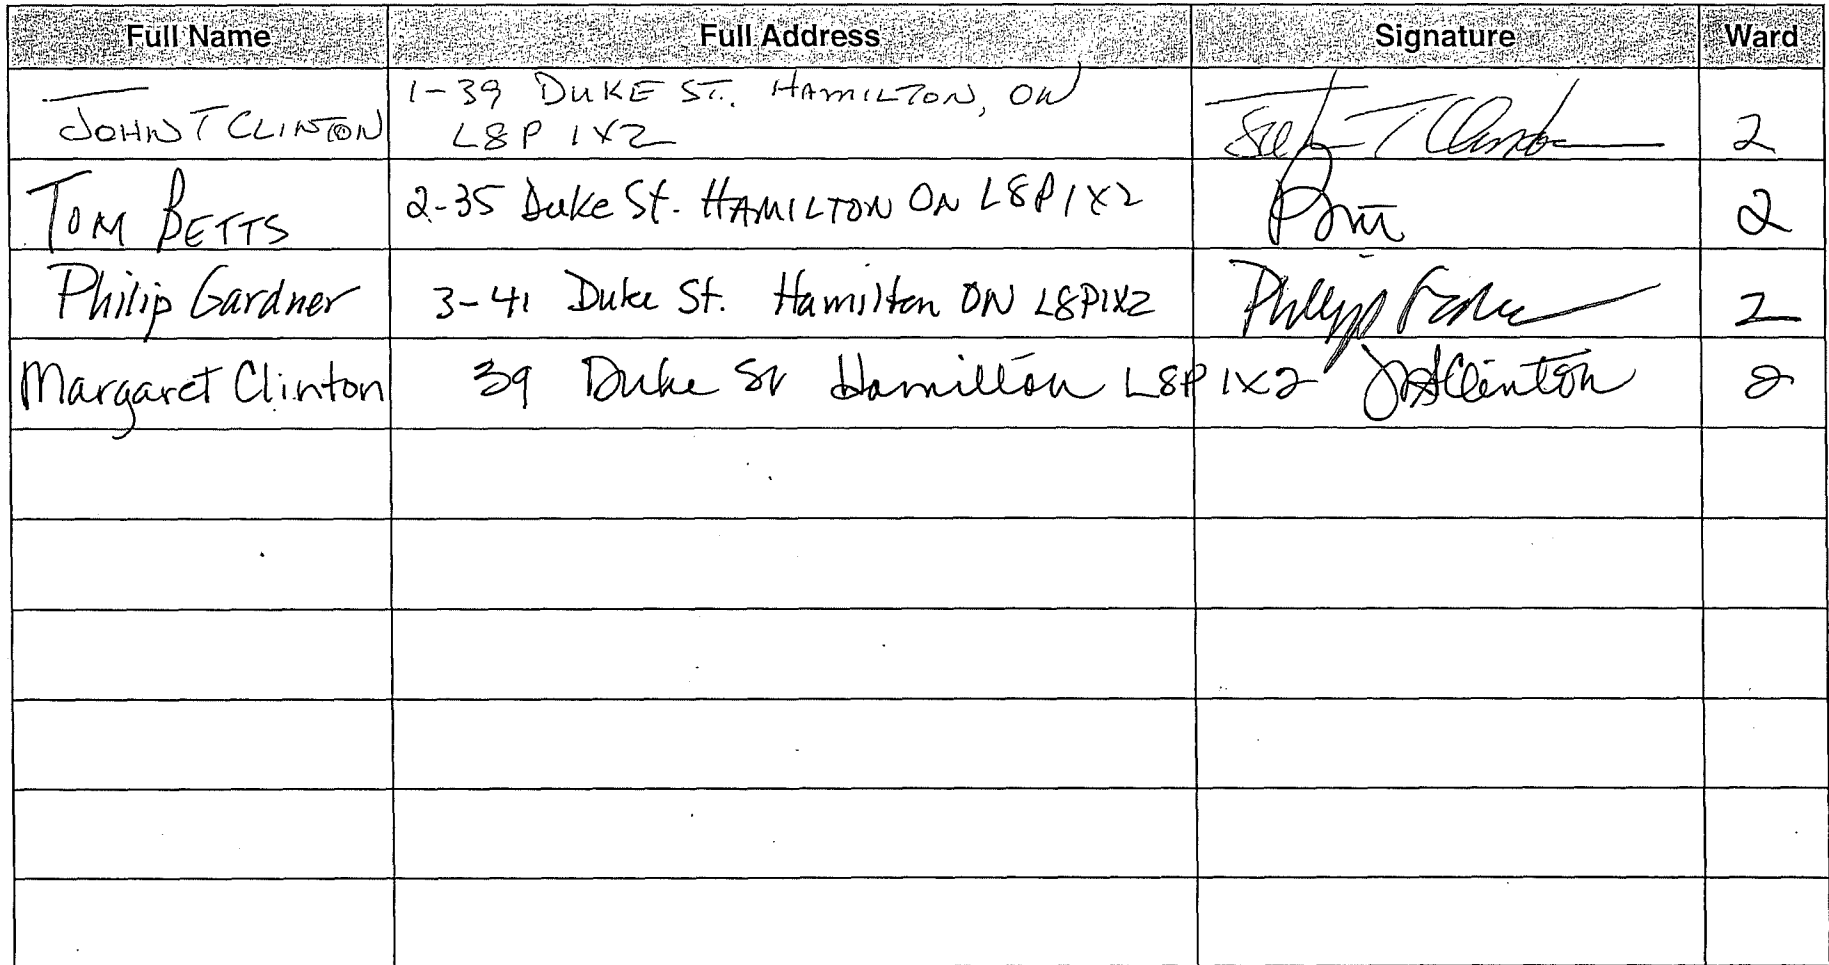 Full Name Full Address Signature Ward
JOHN T CLINTON 1-39 DUKE ST. HAMILTON, ON
L8P 1X2 John T Clinton 2
TOM BETTS 2-35 Duke St. HAMILTON ON L8P 1X2 2
Philip Gardner 3-41 Duke St. Hamilton ON L8P1X2 Philip 2
Margaret Clinton 39 Duke St Hamilton L8P 1X2 Clinton 2